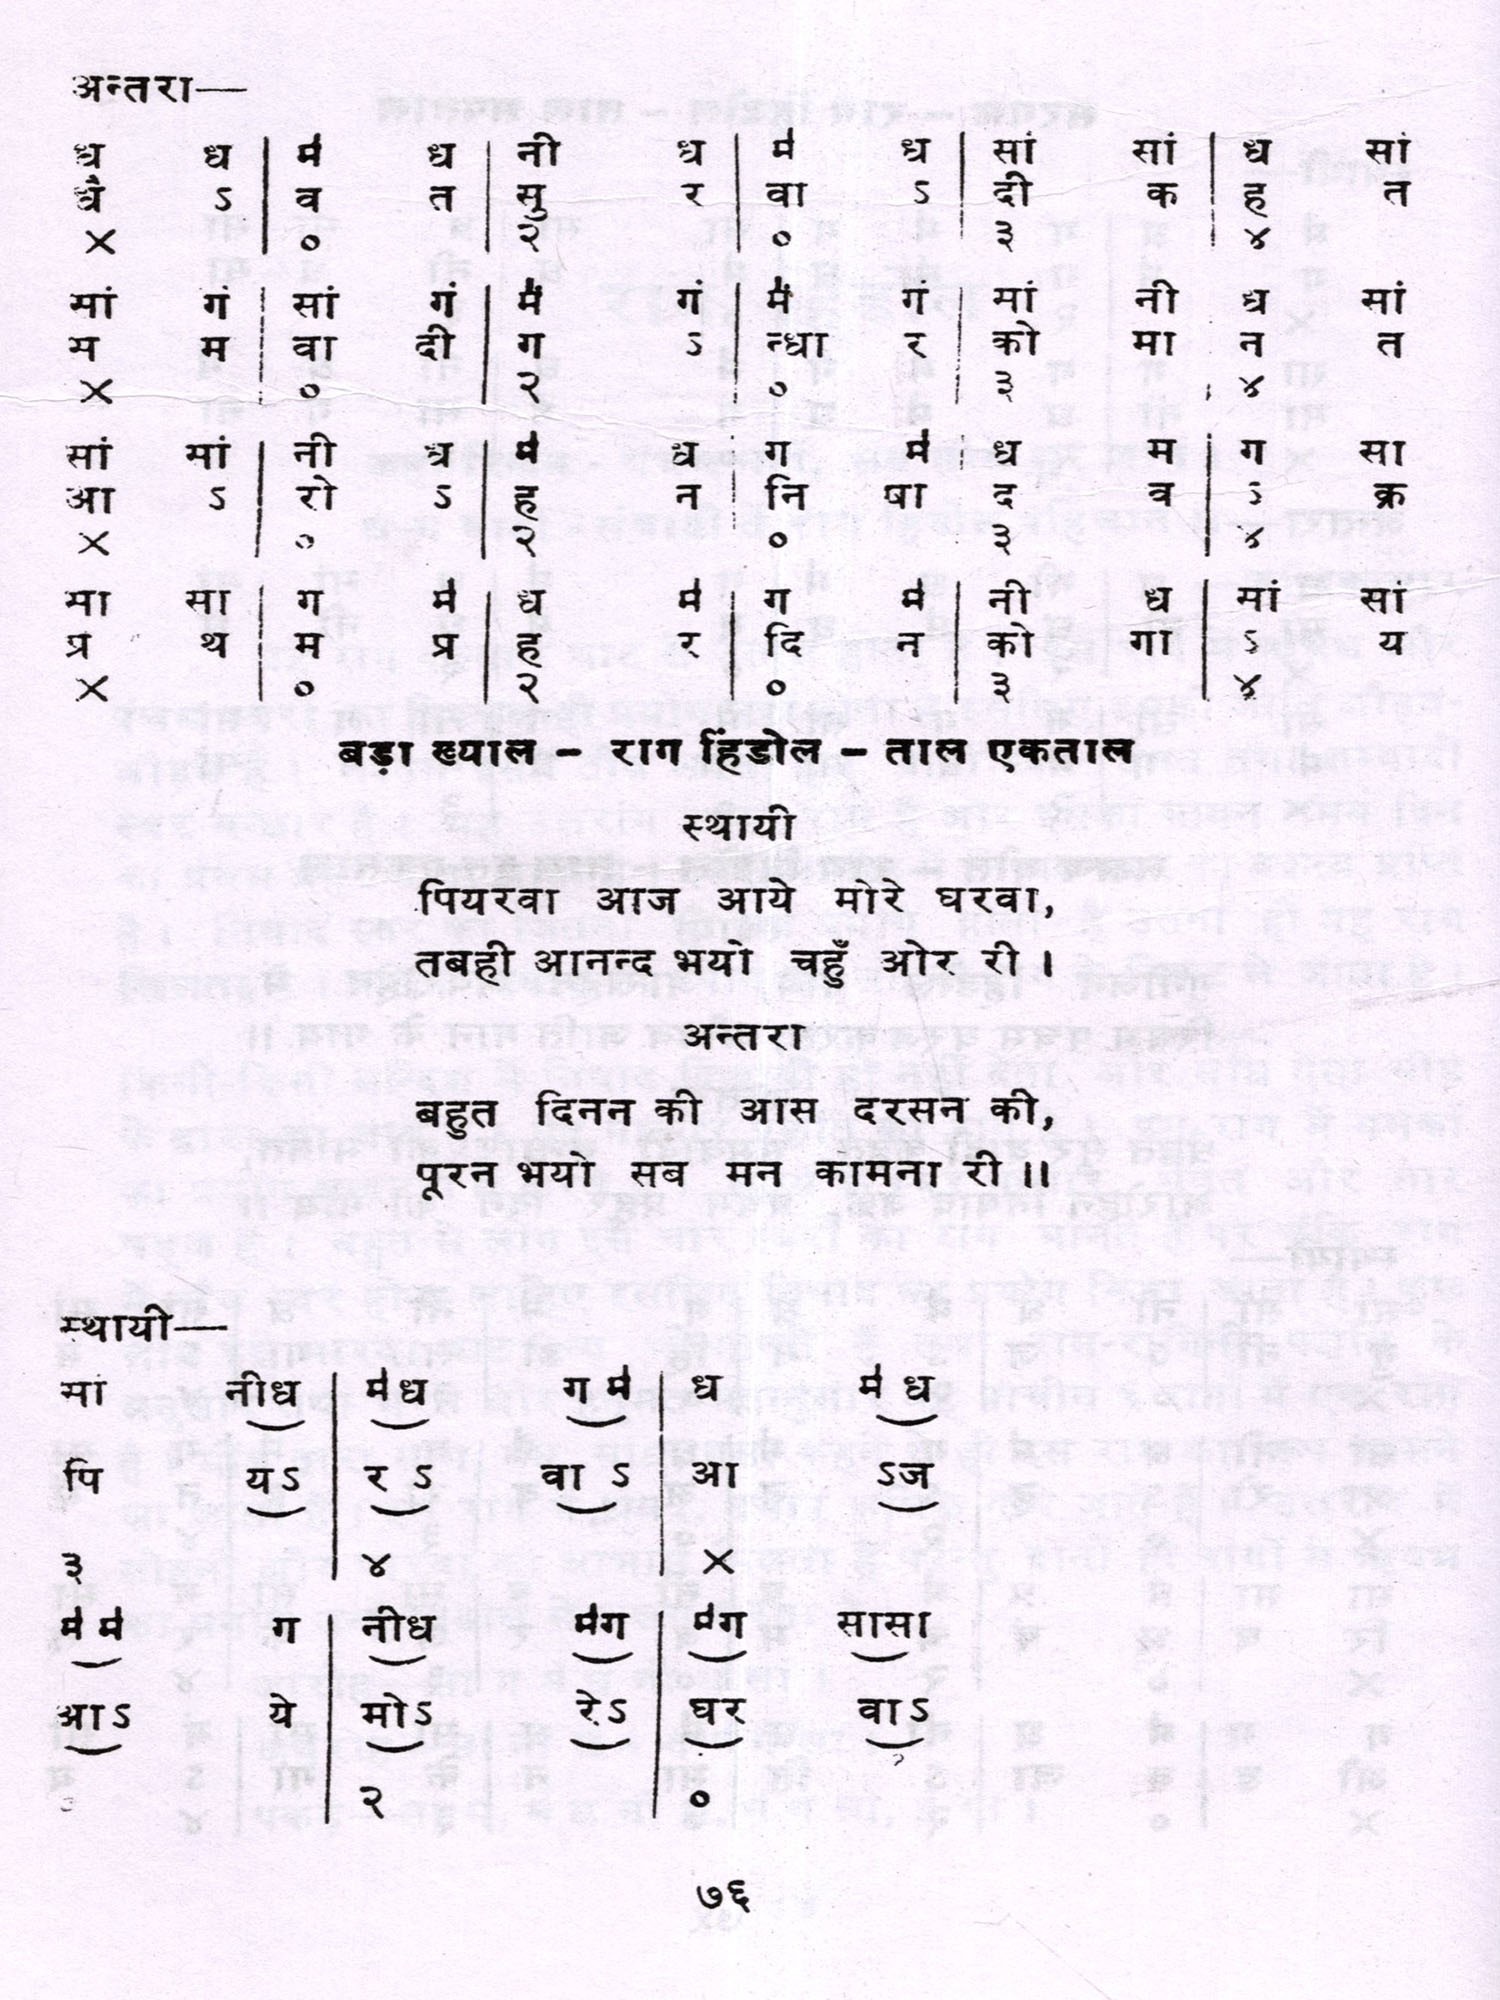 अन्तरा—
ध ध | म॑ ध | नी ध | म॑ ध | सां सां | ध सां
धै ऽ | व त | सु र | वा ऽ | दी क | ह त
× | ० | २ | ० | ३ | ४
सां गं | सां गं | म॑ं गं | म॑ं गं | सां नी | ध सां
स म | वा दी | ग ऽ | न्धा र | को मा | न त
× | ० | २ | ० | ३ | ४
सां सां | नी ध | म॑ ध | ग म॑ | ध म | ग सा
आ ऽ | रो ऽ | ह न | नि षा | द व | ऽ क्र
× | ० | २ | ० | ३ | ४
सा सा | ग म॑ | ध म॑ | ग म॑ | नी ध | सां सां
प्र थ | म प्र | ह र | दि न | को गा | ऽ य
× | ० | २ | ० | ३ | ४
बड़ा ख्याल – राग हिंडोल – ताल एकताल
स्थायी
पियरवा आज आये मोरे घरवा,
तबही आनन्द भयो चहुँ ओर री ।
अन्तरा
बहुत दिनन की आस दरसन की,
पूरन भयो सब मन कामना री ॥
स्थायी—
सां नीध | म॑ध ग म॑ | ध म॑ ध
पि यऽ | र ऽ वा ऽ | आ ऽज
३ | ४ | ×
म॑ म॑ ग | नीध म॑ग | म॑ग सासा
आऽ ये | मोऽ रेऽ | घर वाऽ
० | २ | ०
७६